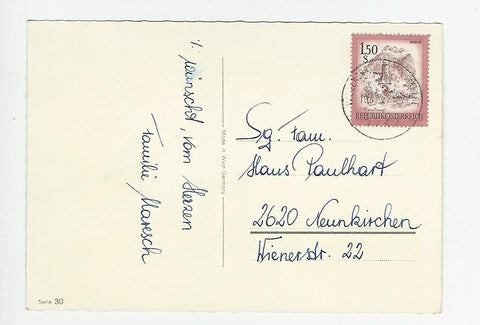 ./. wünscht, vom Herzen
Familie Maresch
Made in West-Germany
1.50
S
REPUBLIK ÖSTERREICH
Sg. Fam.
Hans Paulhart
2620 Neunkirchen
Wienerstr. 22
Serie 30